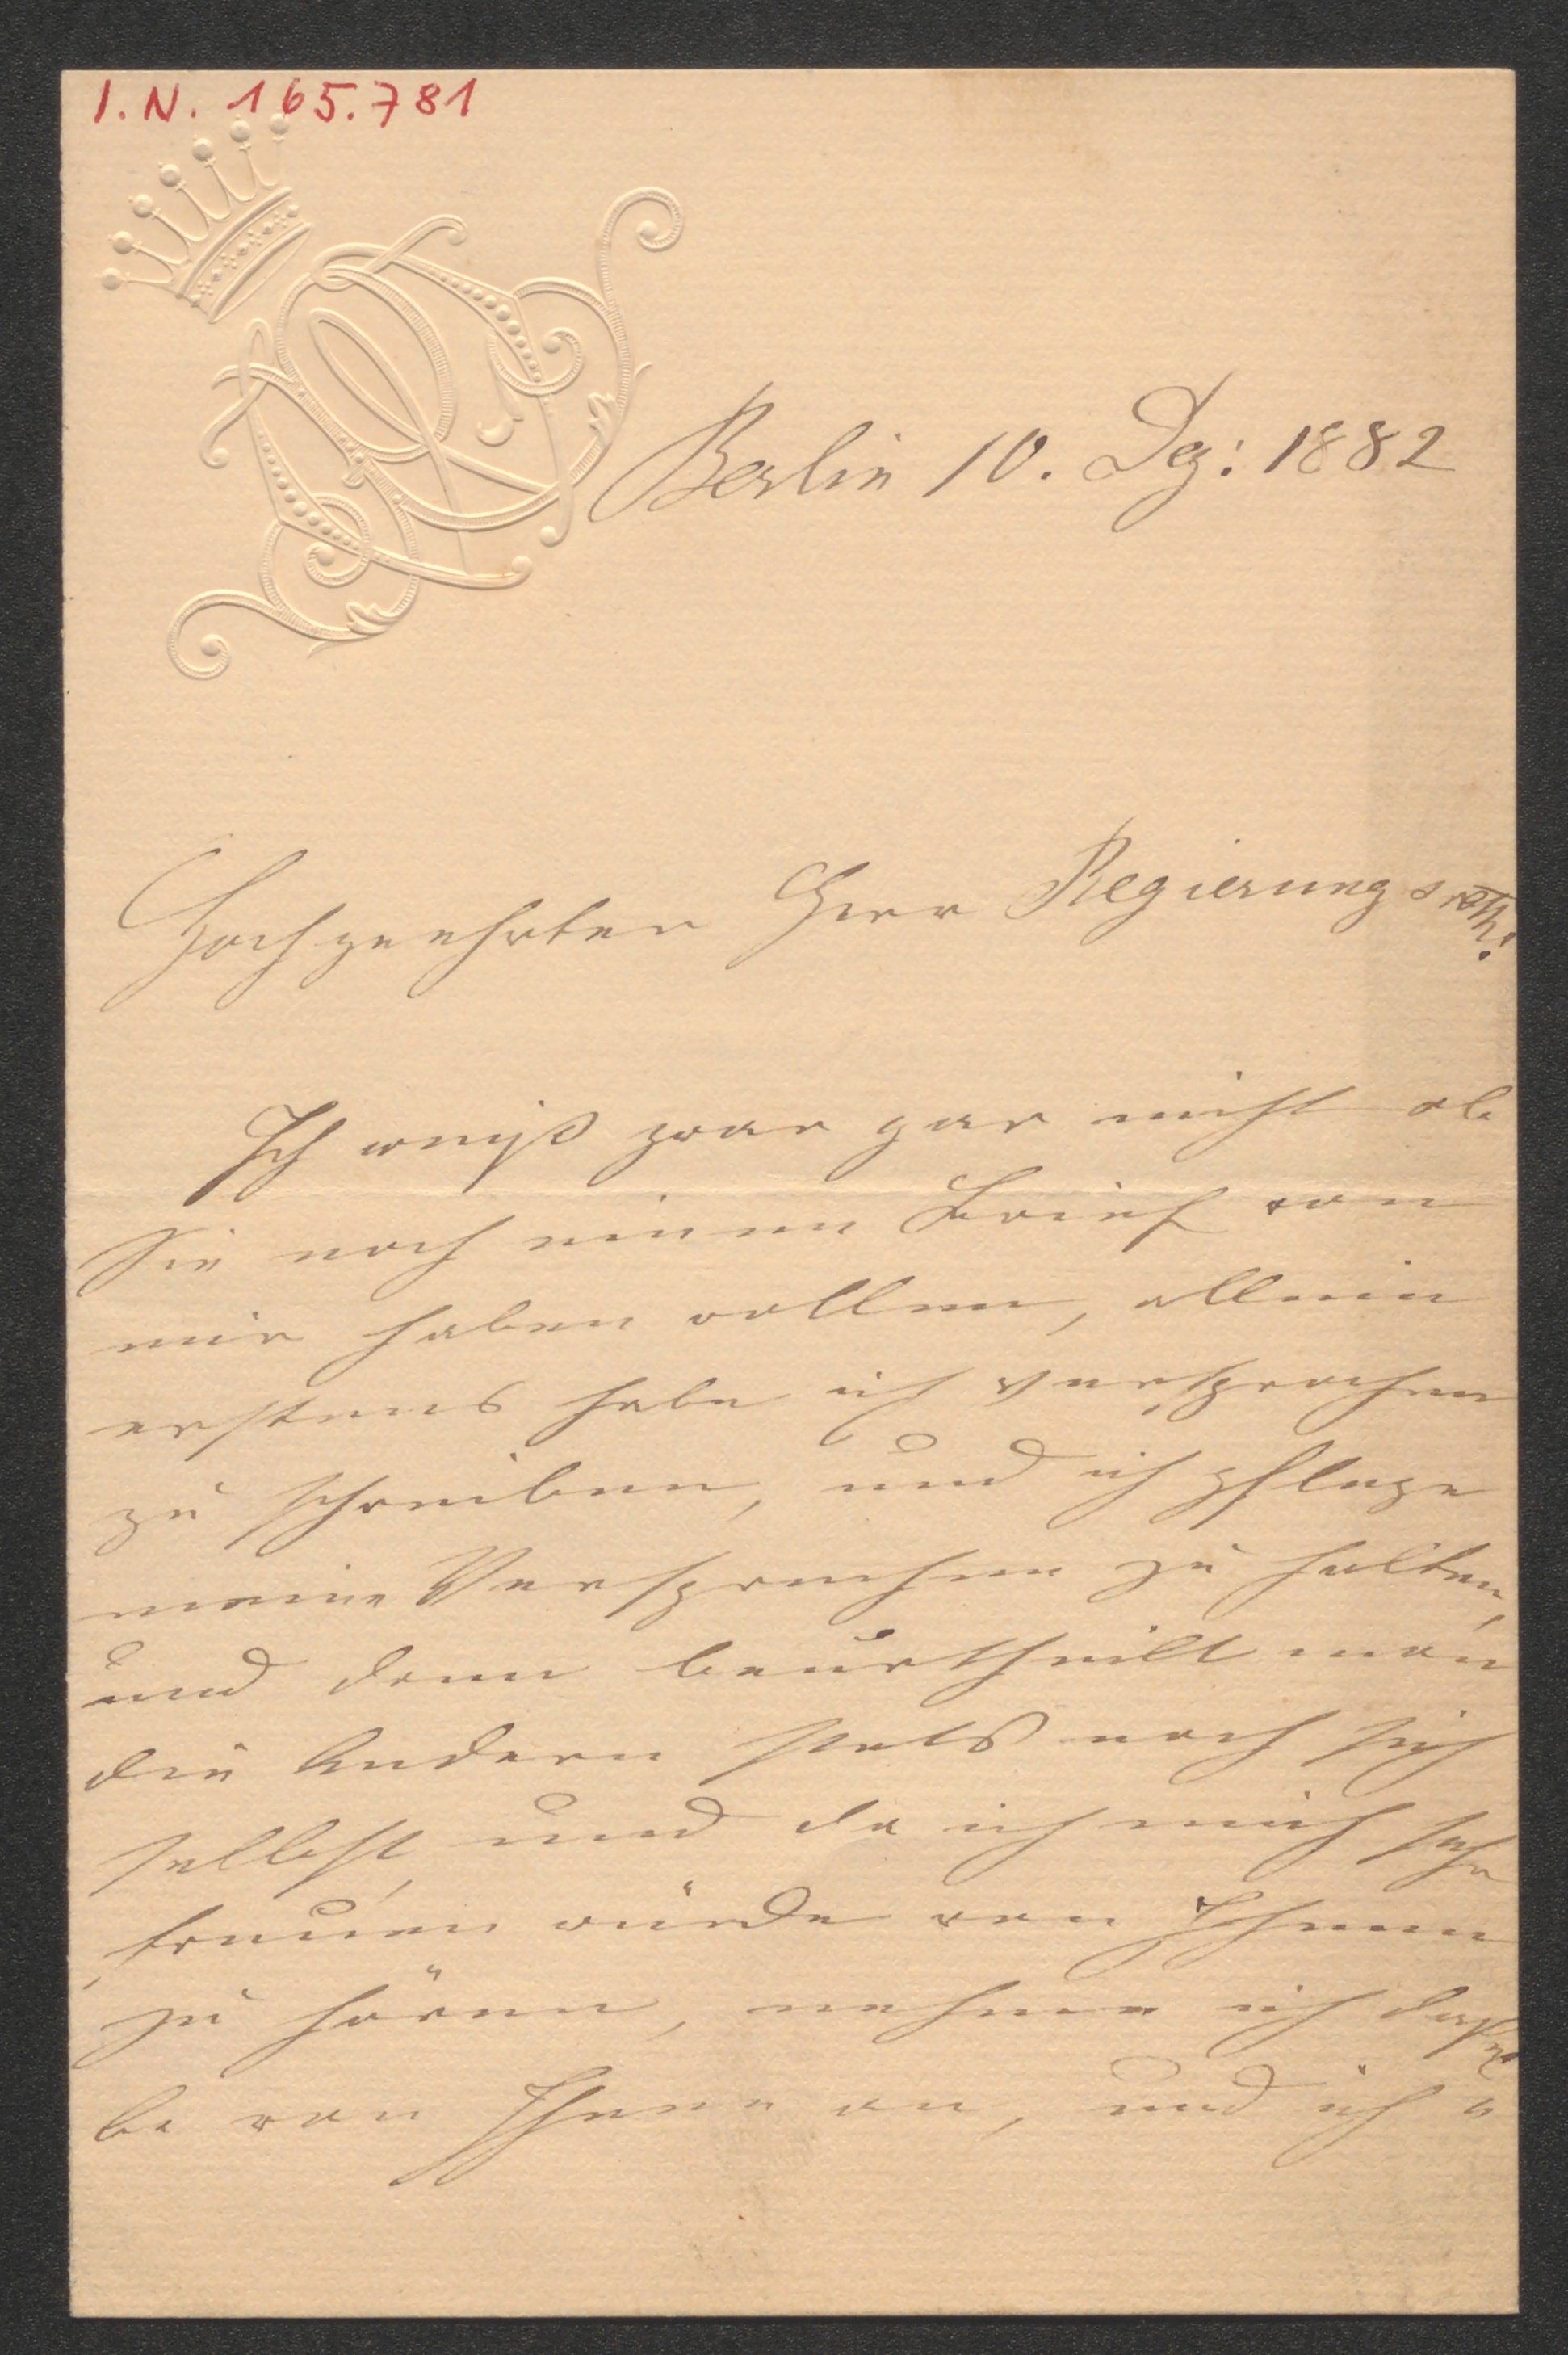 I. N. 165.781
Berlin 10. Dez: 1882
Hochgeehrter Herr Regierungsrath!
Ich weiß zwar gar nicht ob
Sie noch einen Brief von
mir haben wollen, allein
erstens habe ich versprochen
zu schreiben, und ich pflege
meine Versprechen zu halten,
und dann beurtheilt man
die Andern stets nach sich
selbst, und da ich mich sehr
freuen würde von Ihnen
zu hören, nehme ich dassel
be von Ihnen an, und ich